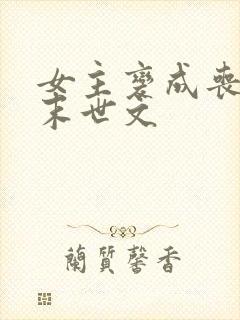 女主變成喪
末世文
蘭質馨香